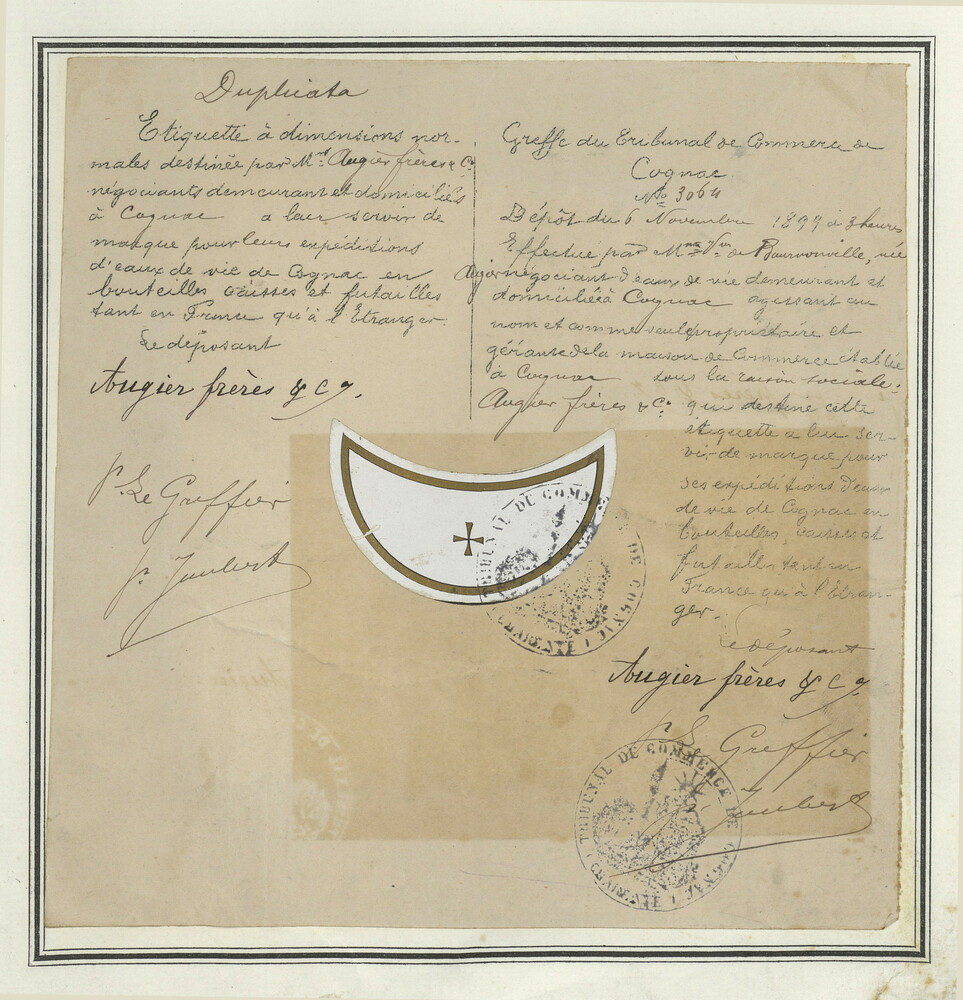 Duplicata
Etiquette à dimensions nor-
males destinée par M.rs Augier frères & C.
négociants demeurant et domiciliés
à Cognac a leur servir de
marque pour leurs expéditions
d'eaux de vie de Cognac en
bouteilles caisses et futailles
tant en France qu'à l'Etranger.
Le déposant
Augier frères & Cº.
P. Le Greffier
Greffe du Tribunal de Commerce de
Cognac
Nº 3064
Dépôt du 6 Novembre 1899 à 3 heures
Effectué par M.me V.ve de Bourronville, née
Augier négociant d'eaux de vie demeurant et
domiciliée à Cognac agissant au
nom et comme seule propriétaire et
gérante de la maison de Commerce établie
à Cognac sous la raison sociale:
Augier frères & Cº qui destine cette
étiquette a lui ser-
vir de marque pour
ses expéditions d'eaux
de vie de Cognac en
bouteilles, caisses et
futailles tant en
France qu'à l'Etran-
ger.
Le déposant
Augier frères & Cº.
P. Le Greffier
TRIBUNAL DE COMMERCE DE COGNAC
(CHARENTE)
TRIBUNAL DE COMMERCE DE COGNAC
(CHARENTE)